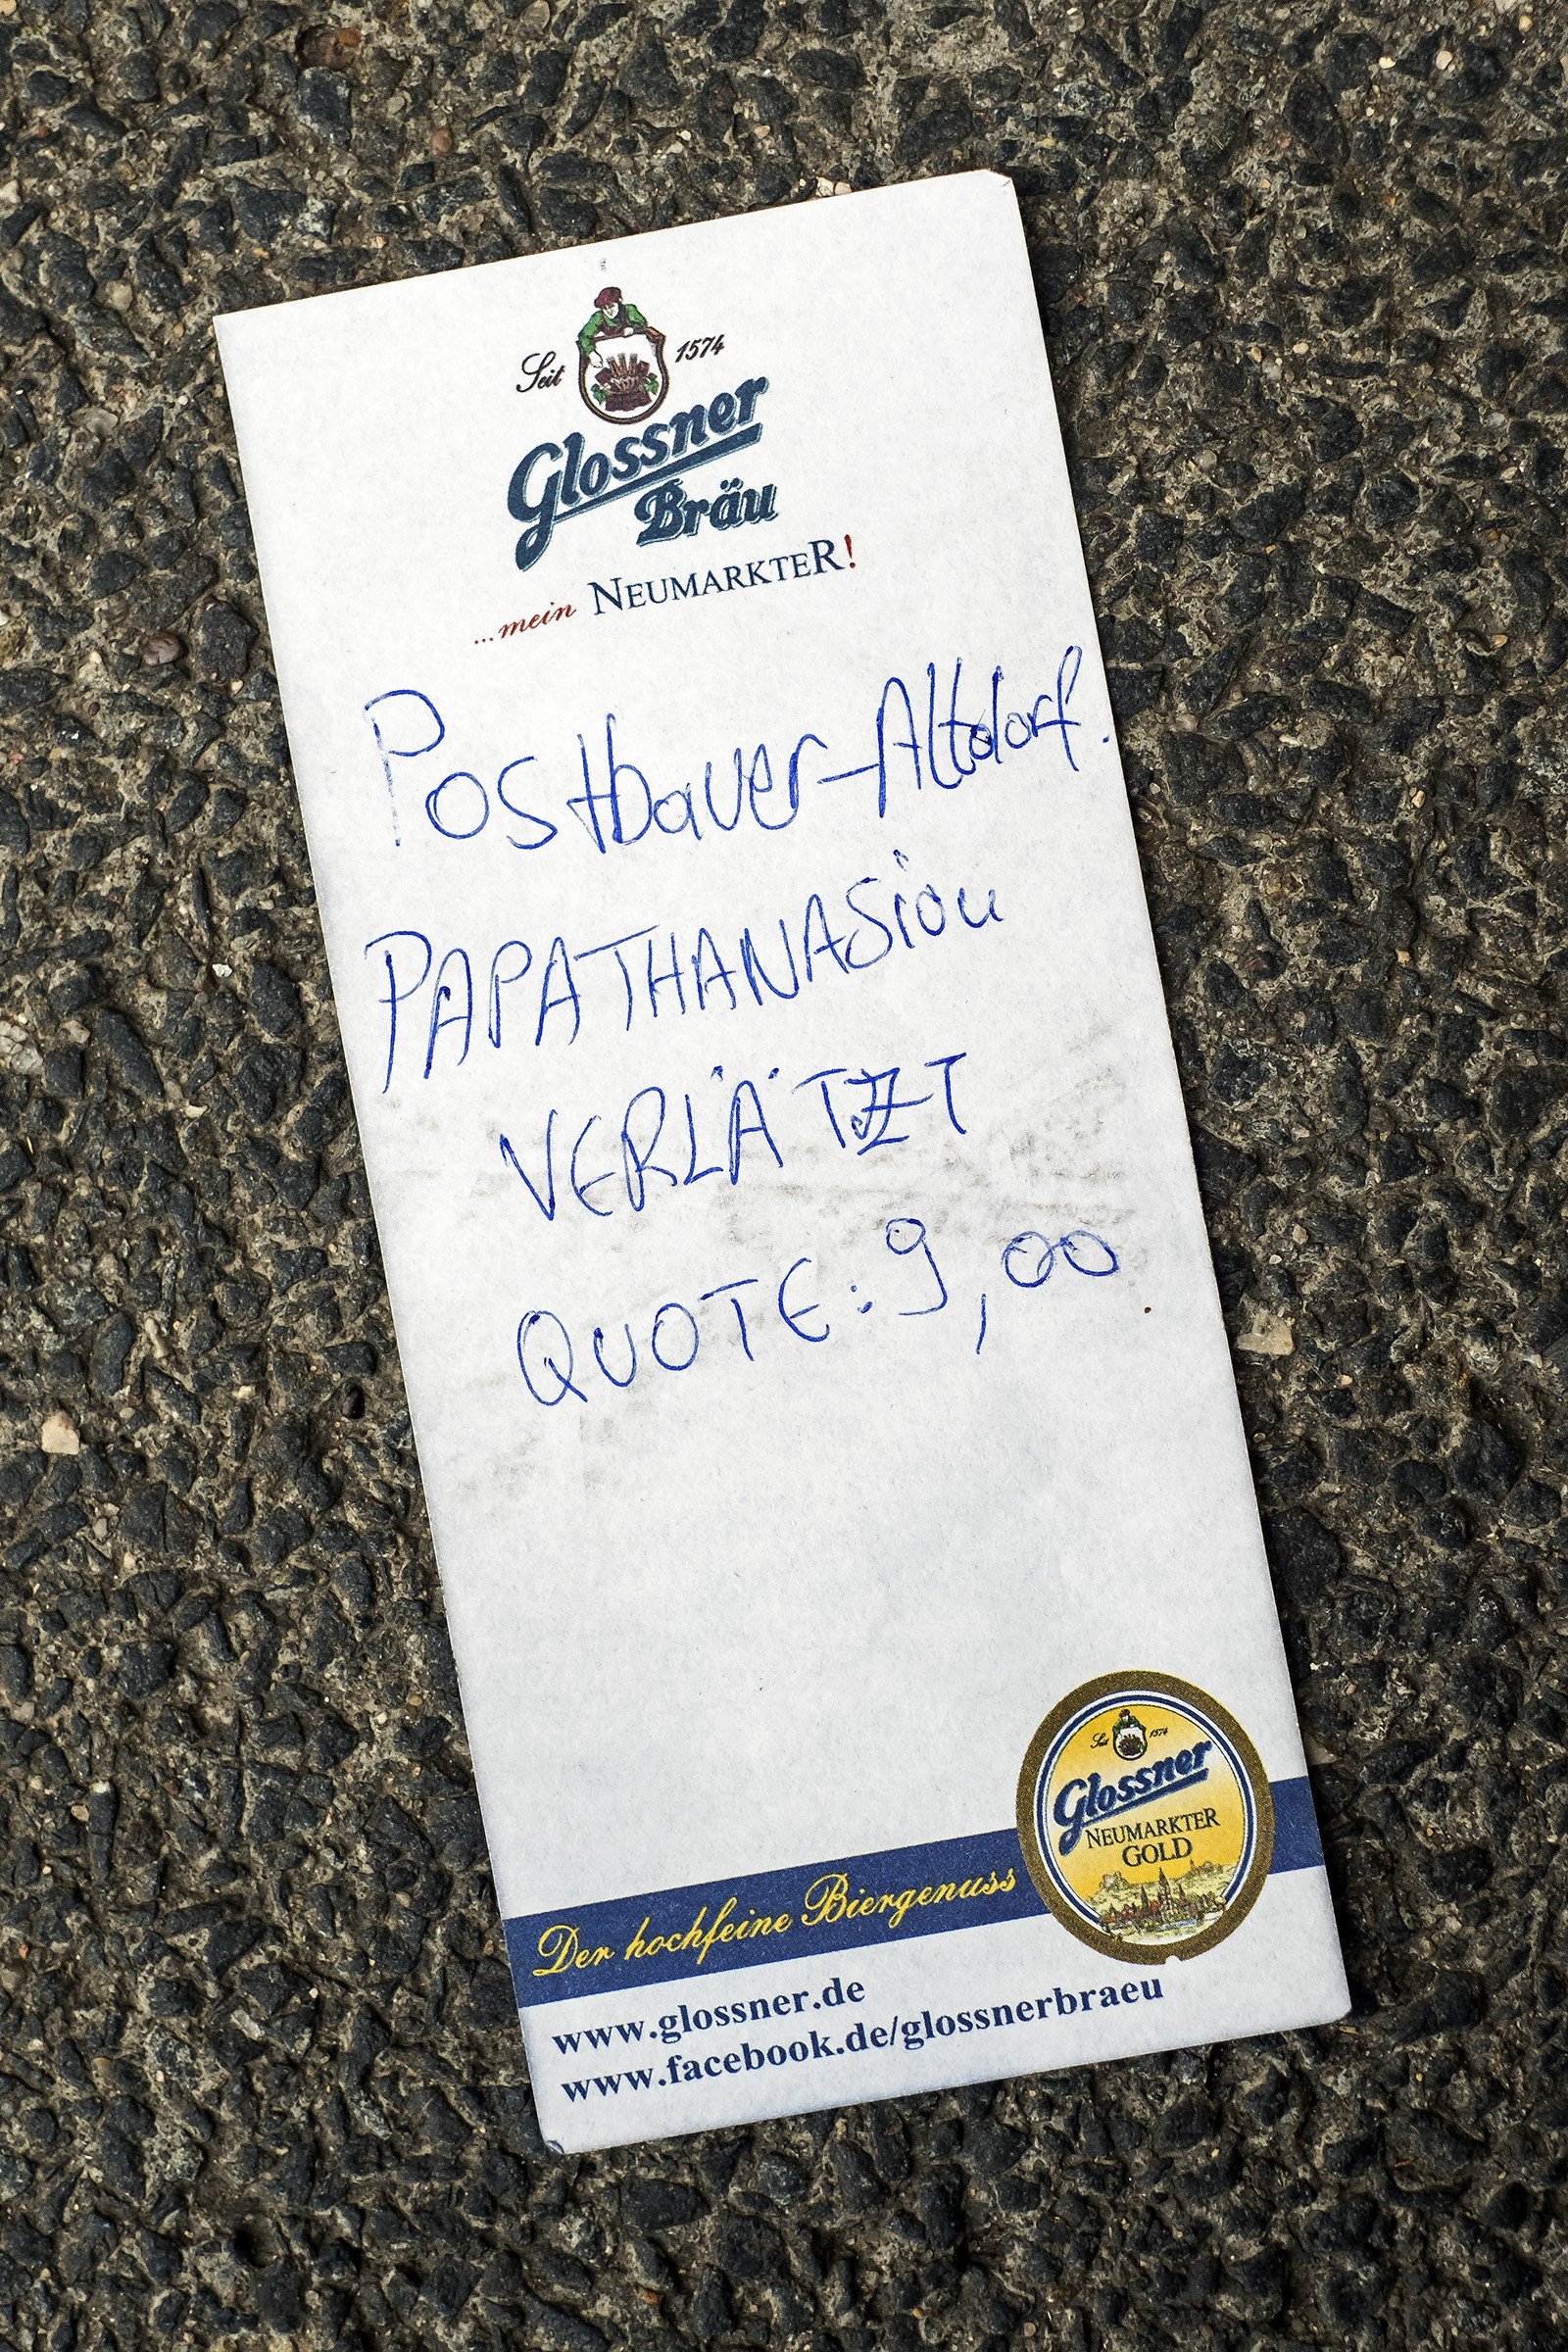 Seit 1574
Glossner
Bräu
...mein NEUMARKTER!
Postbauer-Altdorf.
PAPATHANASiou
VERLÄTZT
QUOTE: 9,00
Seit 1574
Glossner
NEUMARKTER
GOLD
Der hochfeine Biergenuss
www.glossner.de
www.facebook.de/glossnerbraeu